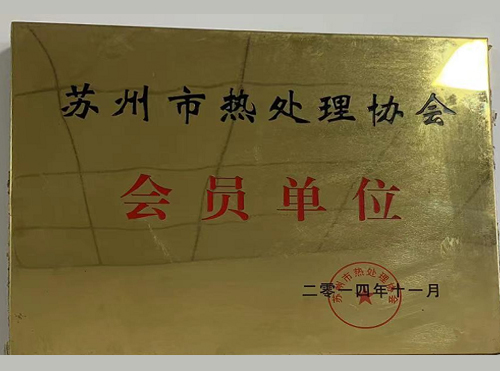 苏州市热处理协会
会员单位
二零一四年十一月
苏州市热处理协会